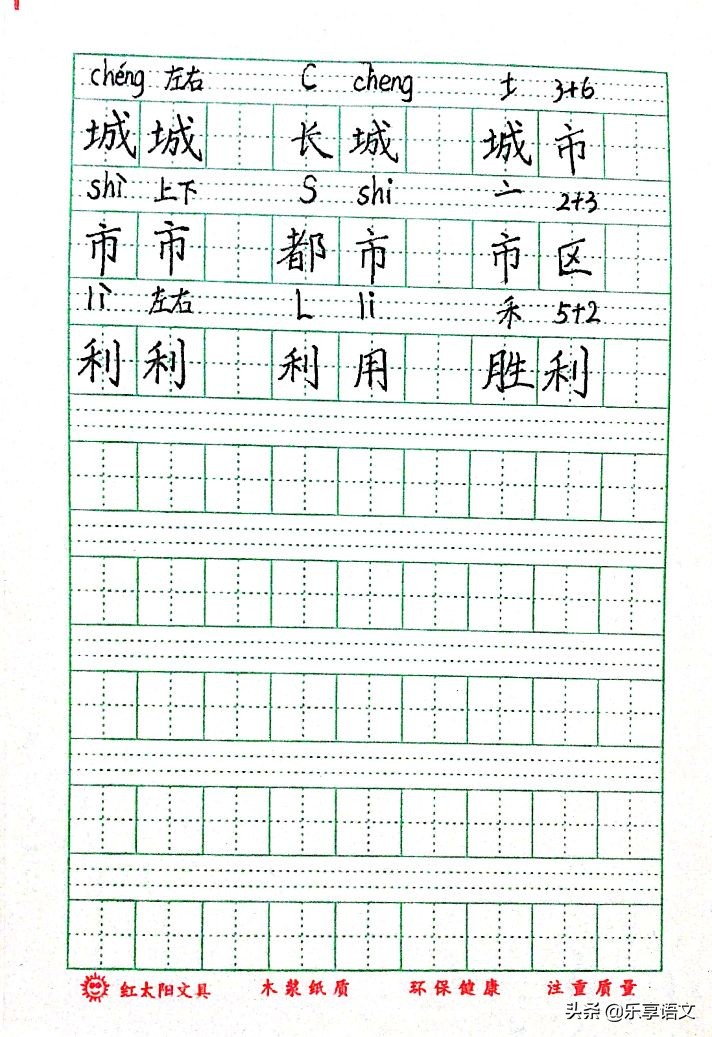 chéng 左右 C cheng 土 3+6
城 城 长 城 城 市
shì 上下 S shi 亠 2+3
市 市 都 市 市 区
lì 左右 L li 禾 5+2
利 利 利 用 胜 利
红太阳文具 木浆纸质 环保健康 注重质量
头条 @乐享语文